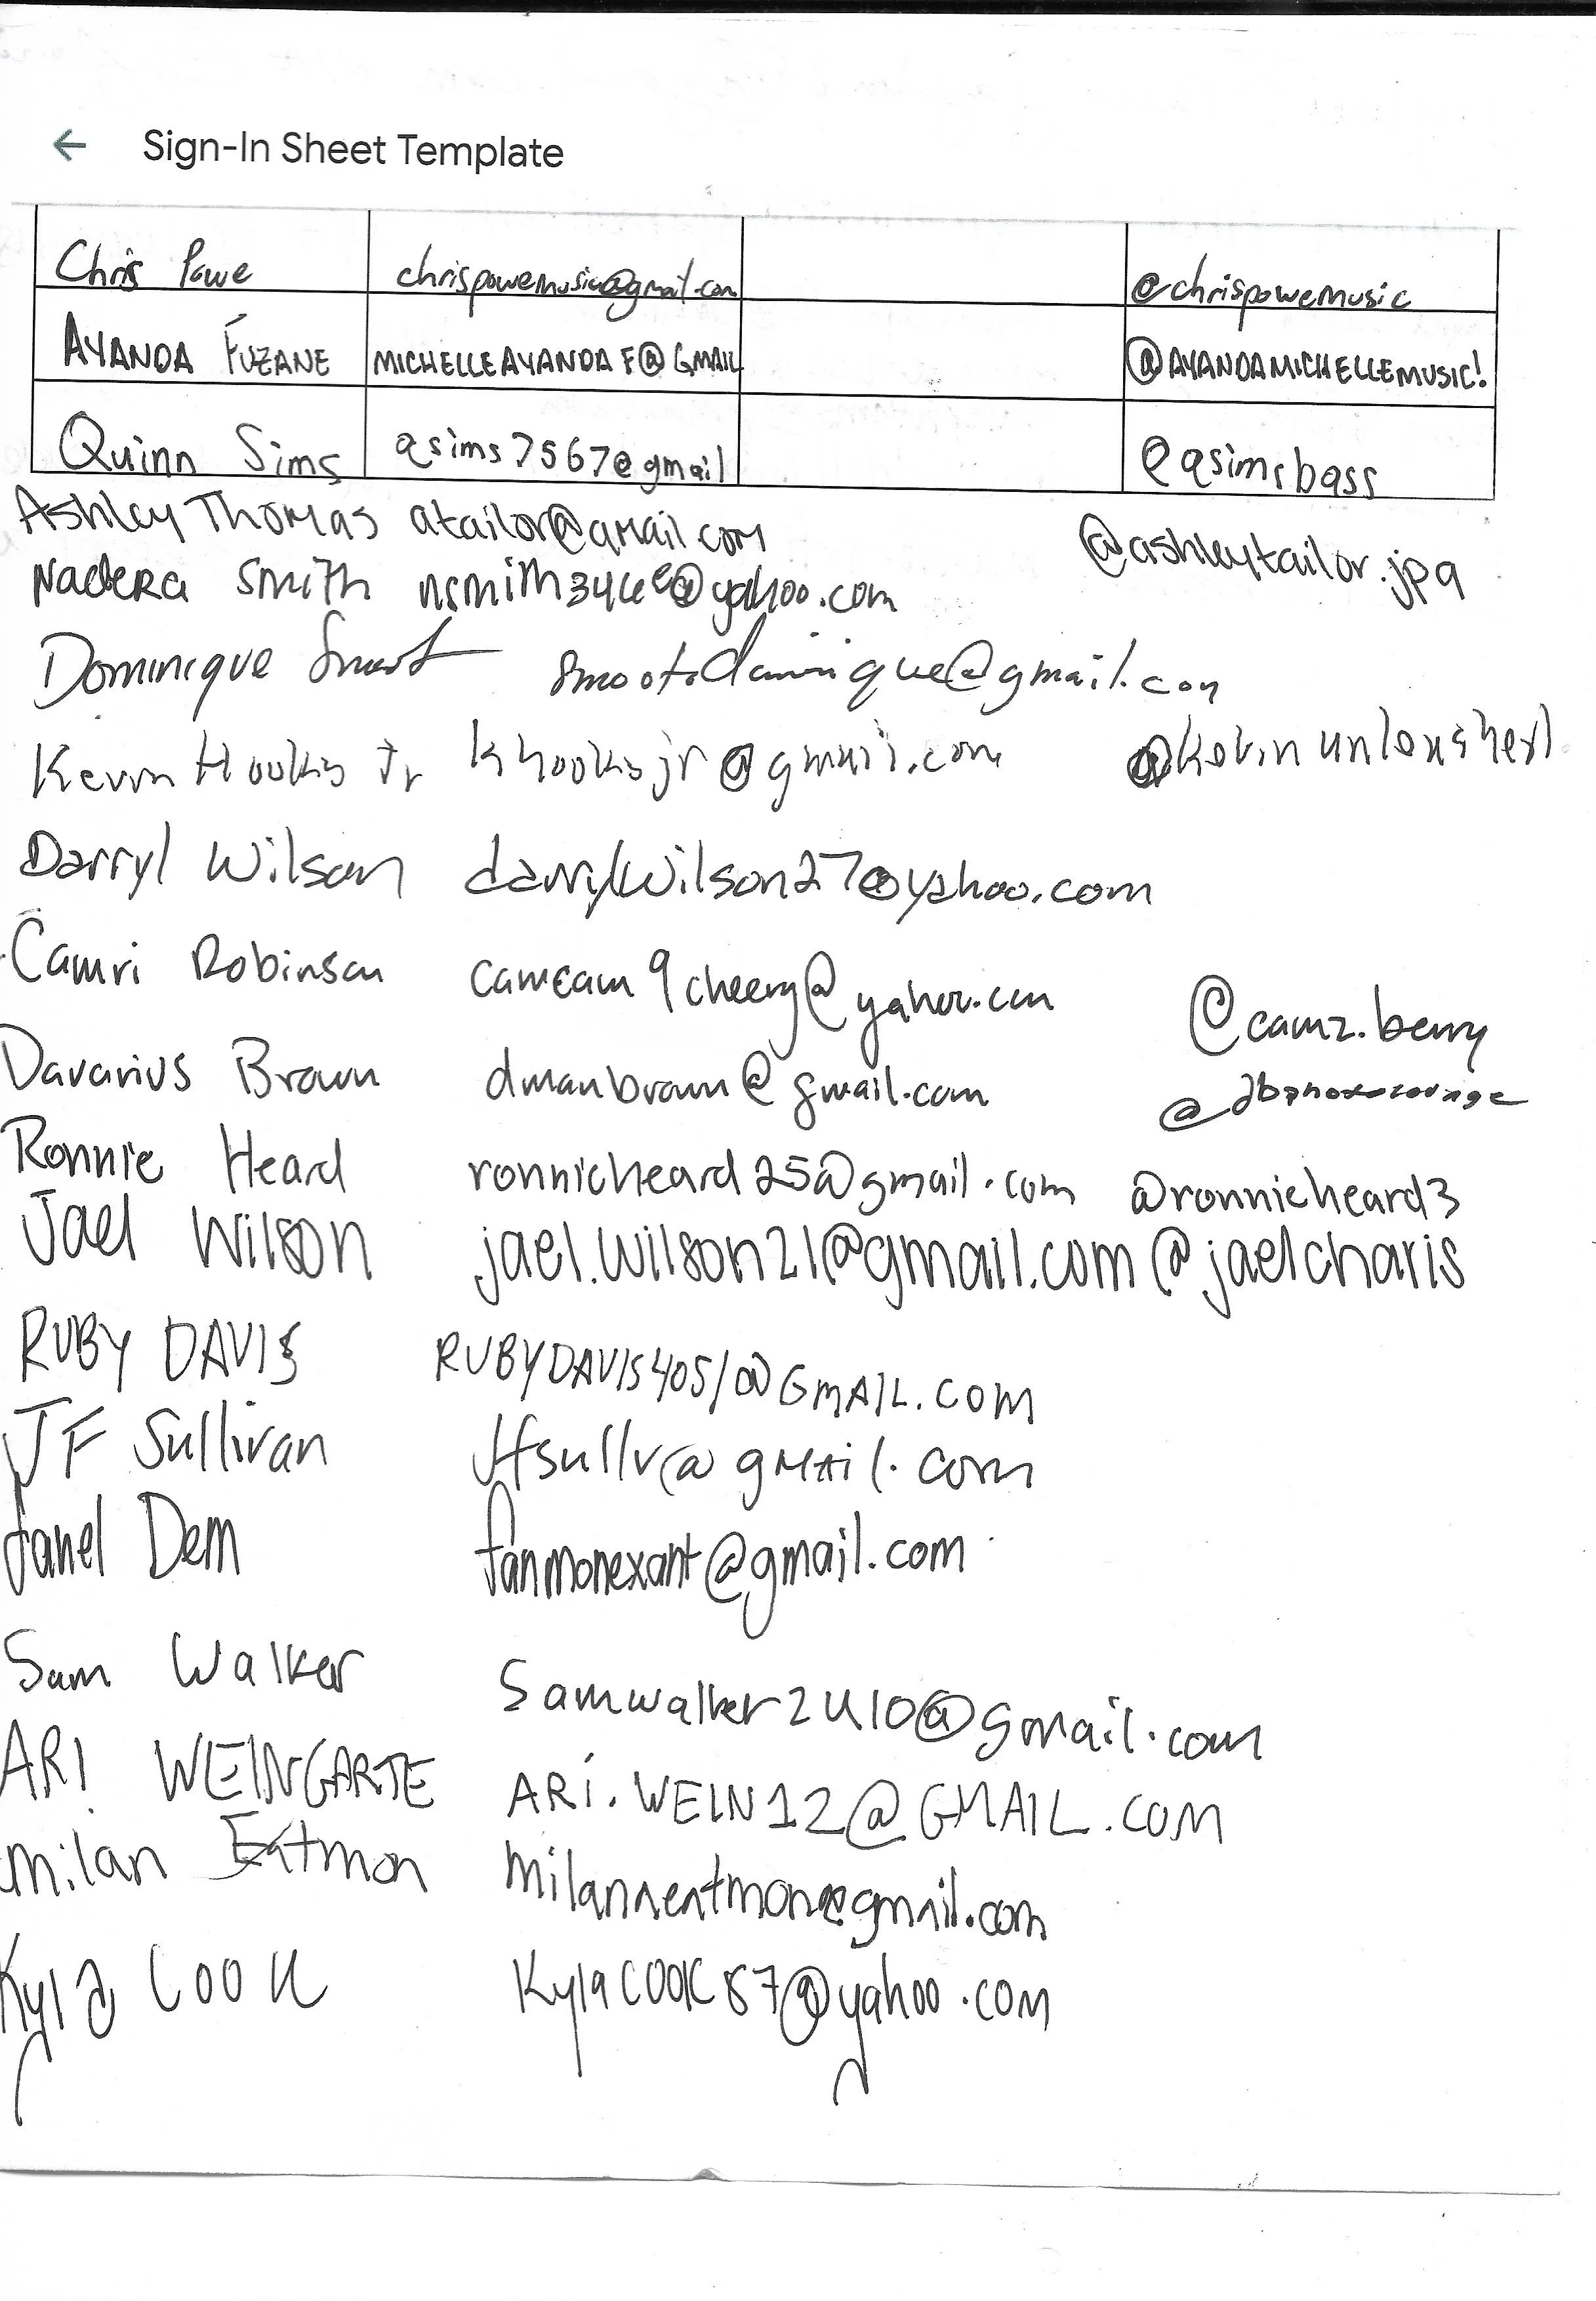 ← Sign-In Sheet Template
Chris Powe chrispowemusic@gmail.com @chrispowemusic
AYANDA FUZANE MICHELLEAYANDAF@GMAIL @AYANDAMICHELLEMUSIC!
Quinn Sims qsims7567@gmail @qsimsbass
Ashley Thomas atailor@gmail.com @ashleytailor.jpg
Nadera Smith @yahoo.com
Dominique Smoot smoot.dominique@gmail.com
Kevin Hookis Jr khookisjr@gmail.com
Darryl Wilson darrylwilson27@yahoo.com
Camri Robinson @yahoo.com @camz.berry
Davarius Brown dmanbrown@gmail.com
Ronnie Heard ronnieheard25@gmail.com @ronnieheard3
Jael Wilson jael.wilson21@gmail.com @jaelcharis
RUBY DAVIS RUBYDAVIS4051@GMAIL.COM
JF Sullivan jfsullv@gmail.com
Fanel Dem fanmonexant@gmail.com
Sam Walker @gmail.com
ARI WEINGARTE ARI.WEIN12@GMAIL.COM
Milan Eatmon milanneatmon@gmail.com
Kyla Cook Kylacook87@yahoo.com